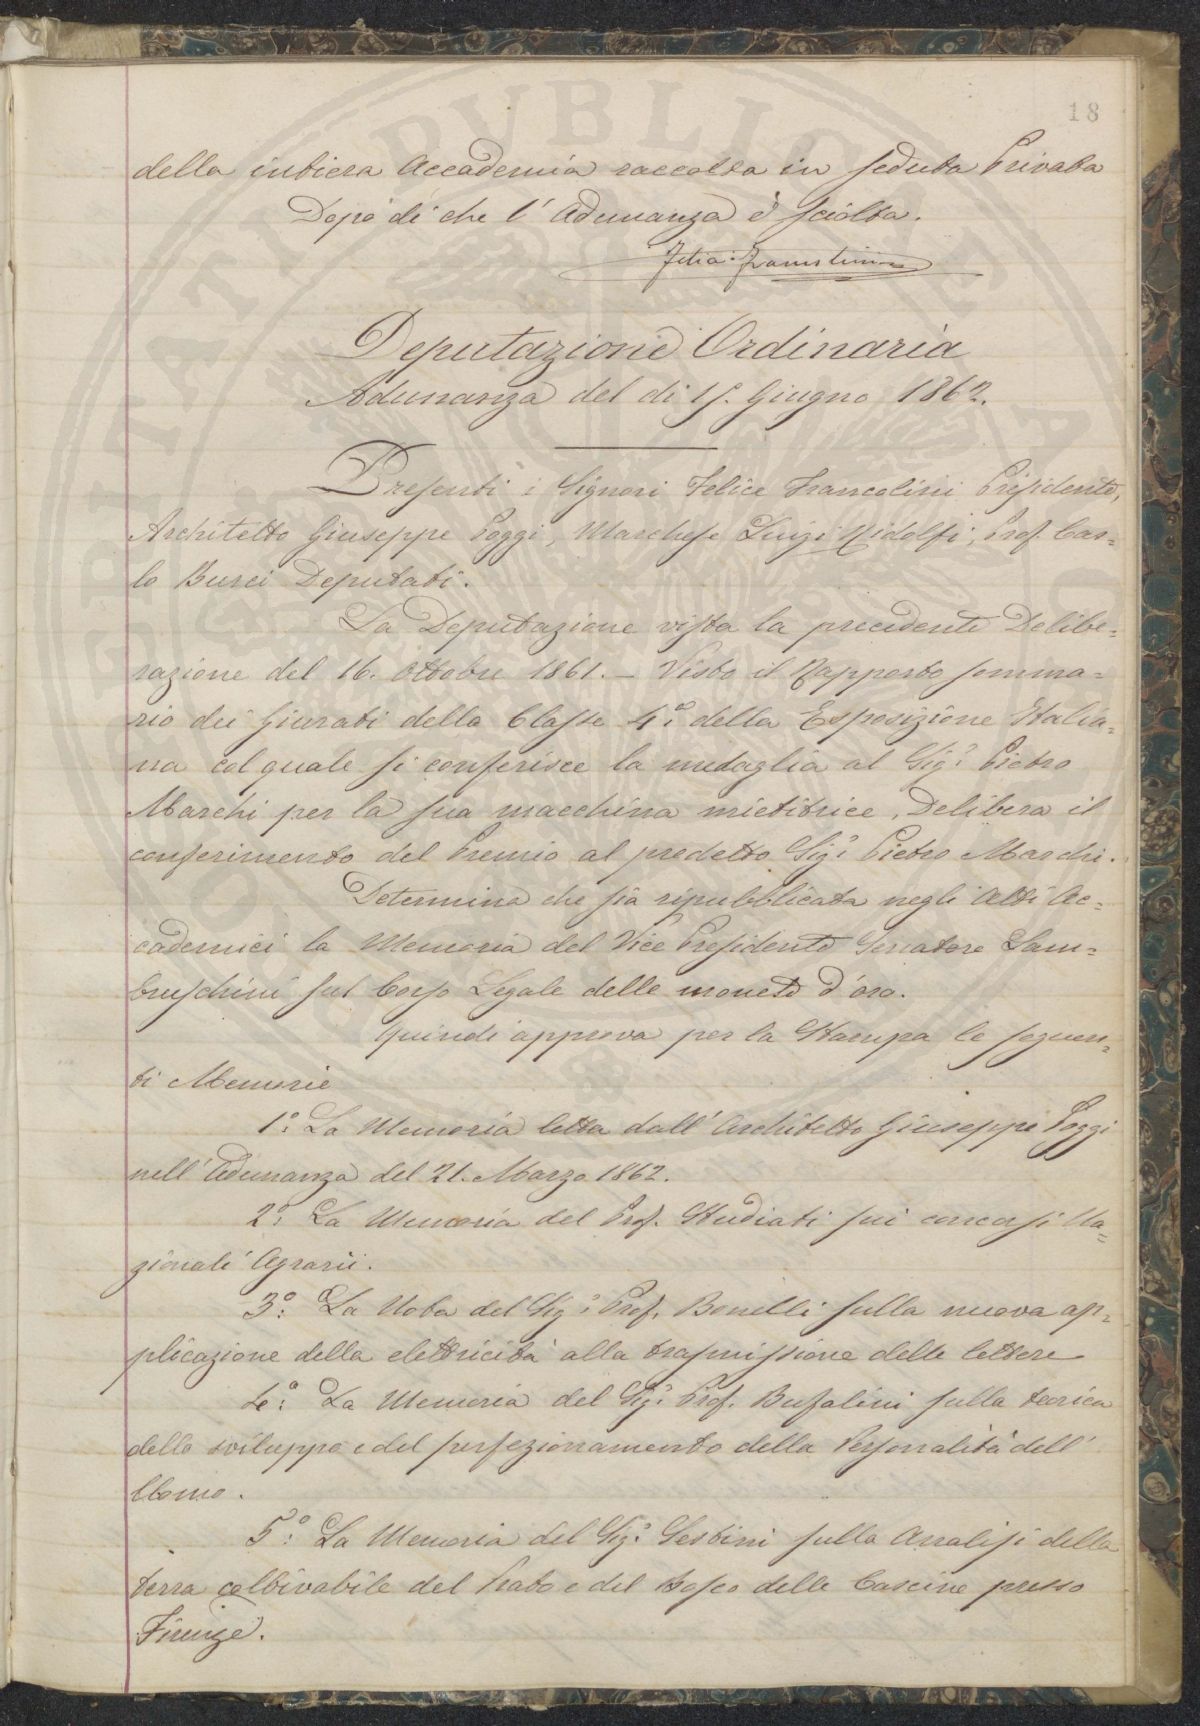 18
della intiera Accademia raccolta in seduta Privata
Dopo di che l'Adunanza è sciolta.
Deputazione Ordinaria
Adunanza del di 15. Giugno 1862.
Presenti i Signori Felice Francolini Presidente,
Architetto Giuseppe Poggi, Marchese Luigi Ridolfi, Prof. Car=
lo Burci Deputati.
La Deputazione vista la precedente Delibe=
razione del 16. Ottobre 1861. — Visto il Rapporto somma=
rio dei Giurati della Classe 4ª. della Esposizione Italia=
na col quale si conferisce la medaglia al Sigr. Pietro
Marchi per la sua macchina mietitrice, Delibera il
conferimento del Premio al predetto Sigr. Pietro Marchi.
Determina che sia ripubblicata negli Atti Ac=
cademici la Memoria del Vice Presidente Senatore Lam=
bruschini sul Corso Legale delle monete d'oro.
Quindi approva per la Stampa le seguen=
ti Memorie
1º. La Memoria letta dall'Architetto Giuseppe Poggi
nell'Adunanza del 21. Marzo 1862.
2º. La Memoria del Prof. Studiati sui concorsi Na=
zionali Agrarii.
3º. La Nota del Sigr. Prof. Bonelli sulla nuova ap=
plicazione della elettricità alla trasmissione delle lettere
4º. La Memoria del Sigr. Prof. Bufalini sulla teorica
dello sviluppo e del perfezionamento della Personalità dell'
Uomo.
5º. La Memoria del Sigr. Sestini sulla Analisi della
terra coltivabile del Prato e del Bosco delle Cascine presso
Firenze.
PVBLICAE